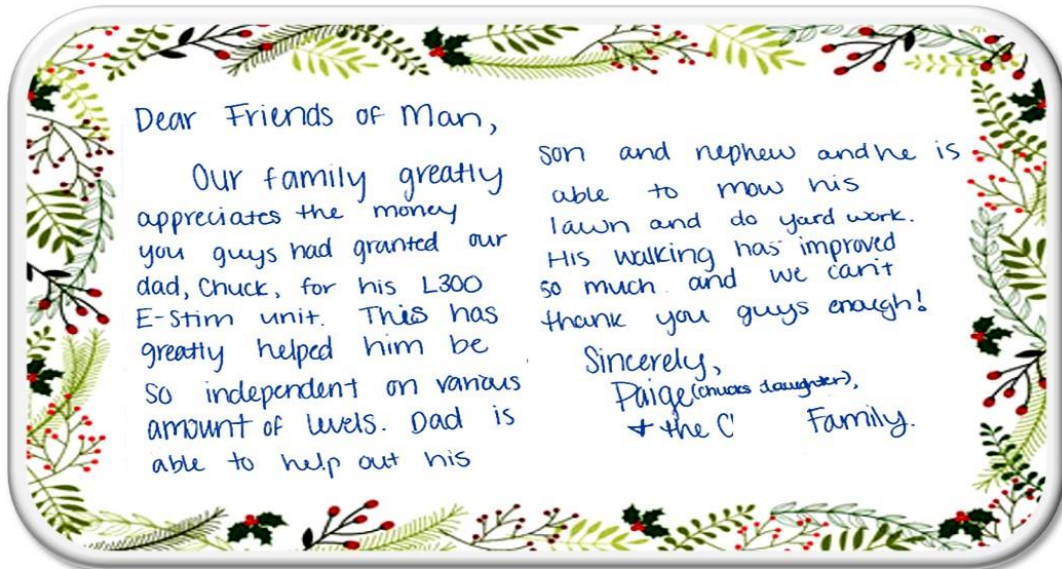 Dear Friends of Man,
Our family greatly
appreciates the money
you guys had granted our
dad, Chuck, for his L300
E-Stim unit. This has
greatly helped him be
so independent on various
amount of levels. Dad is
able to help out his
son and nephew and he is
able to mow his
lawn and do yard work.
His walking has improved
so much and we can't
thank you guys enough!
Sincerely,
Paige (Chucks daughter),
+ the C Family.